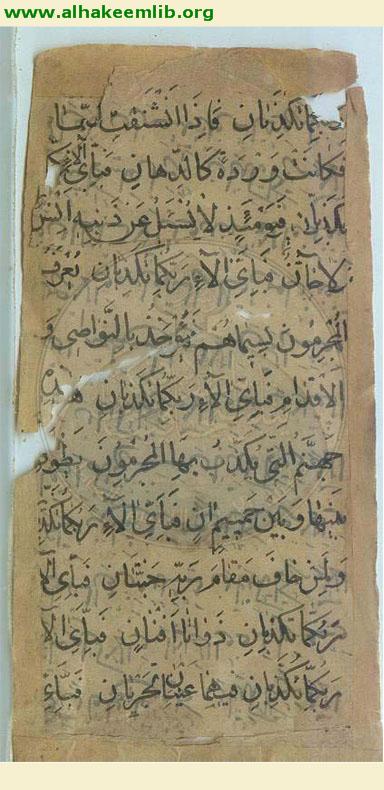 www.alhakeemlib.org
ربكما تكذبان فاذا انشقت السما
فكانت وردة كالدهان فباي الا ربكما
تكذبان فيومئذ لا يسئل عن ذنبه انس
ولا جان فباي الاء ربكما تكذبان يعرف
المجرمون بسيماهم فيؤخذ بالنواصى و
الاقدام فباى الاء ربكما تكذبان هذه
جهنم التى يكذب بها المجرمون يطوفو
بينها وبين حميم ان فباي الاء ربكما تكذ
ولمن خاف مقام ربه جنتان فباى الا
ربكما تكذبان ذواتا افنان فباي الا
ربكما تكذبان فيهما عينان تجريان فباى